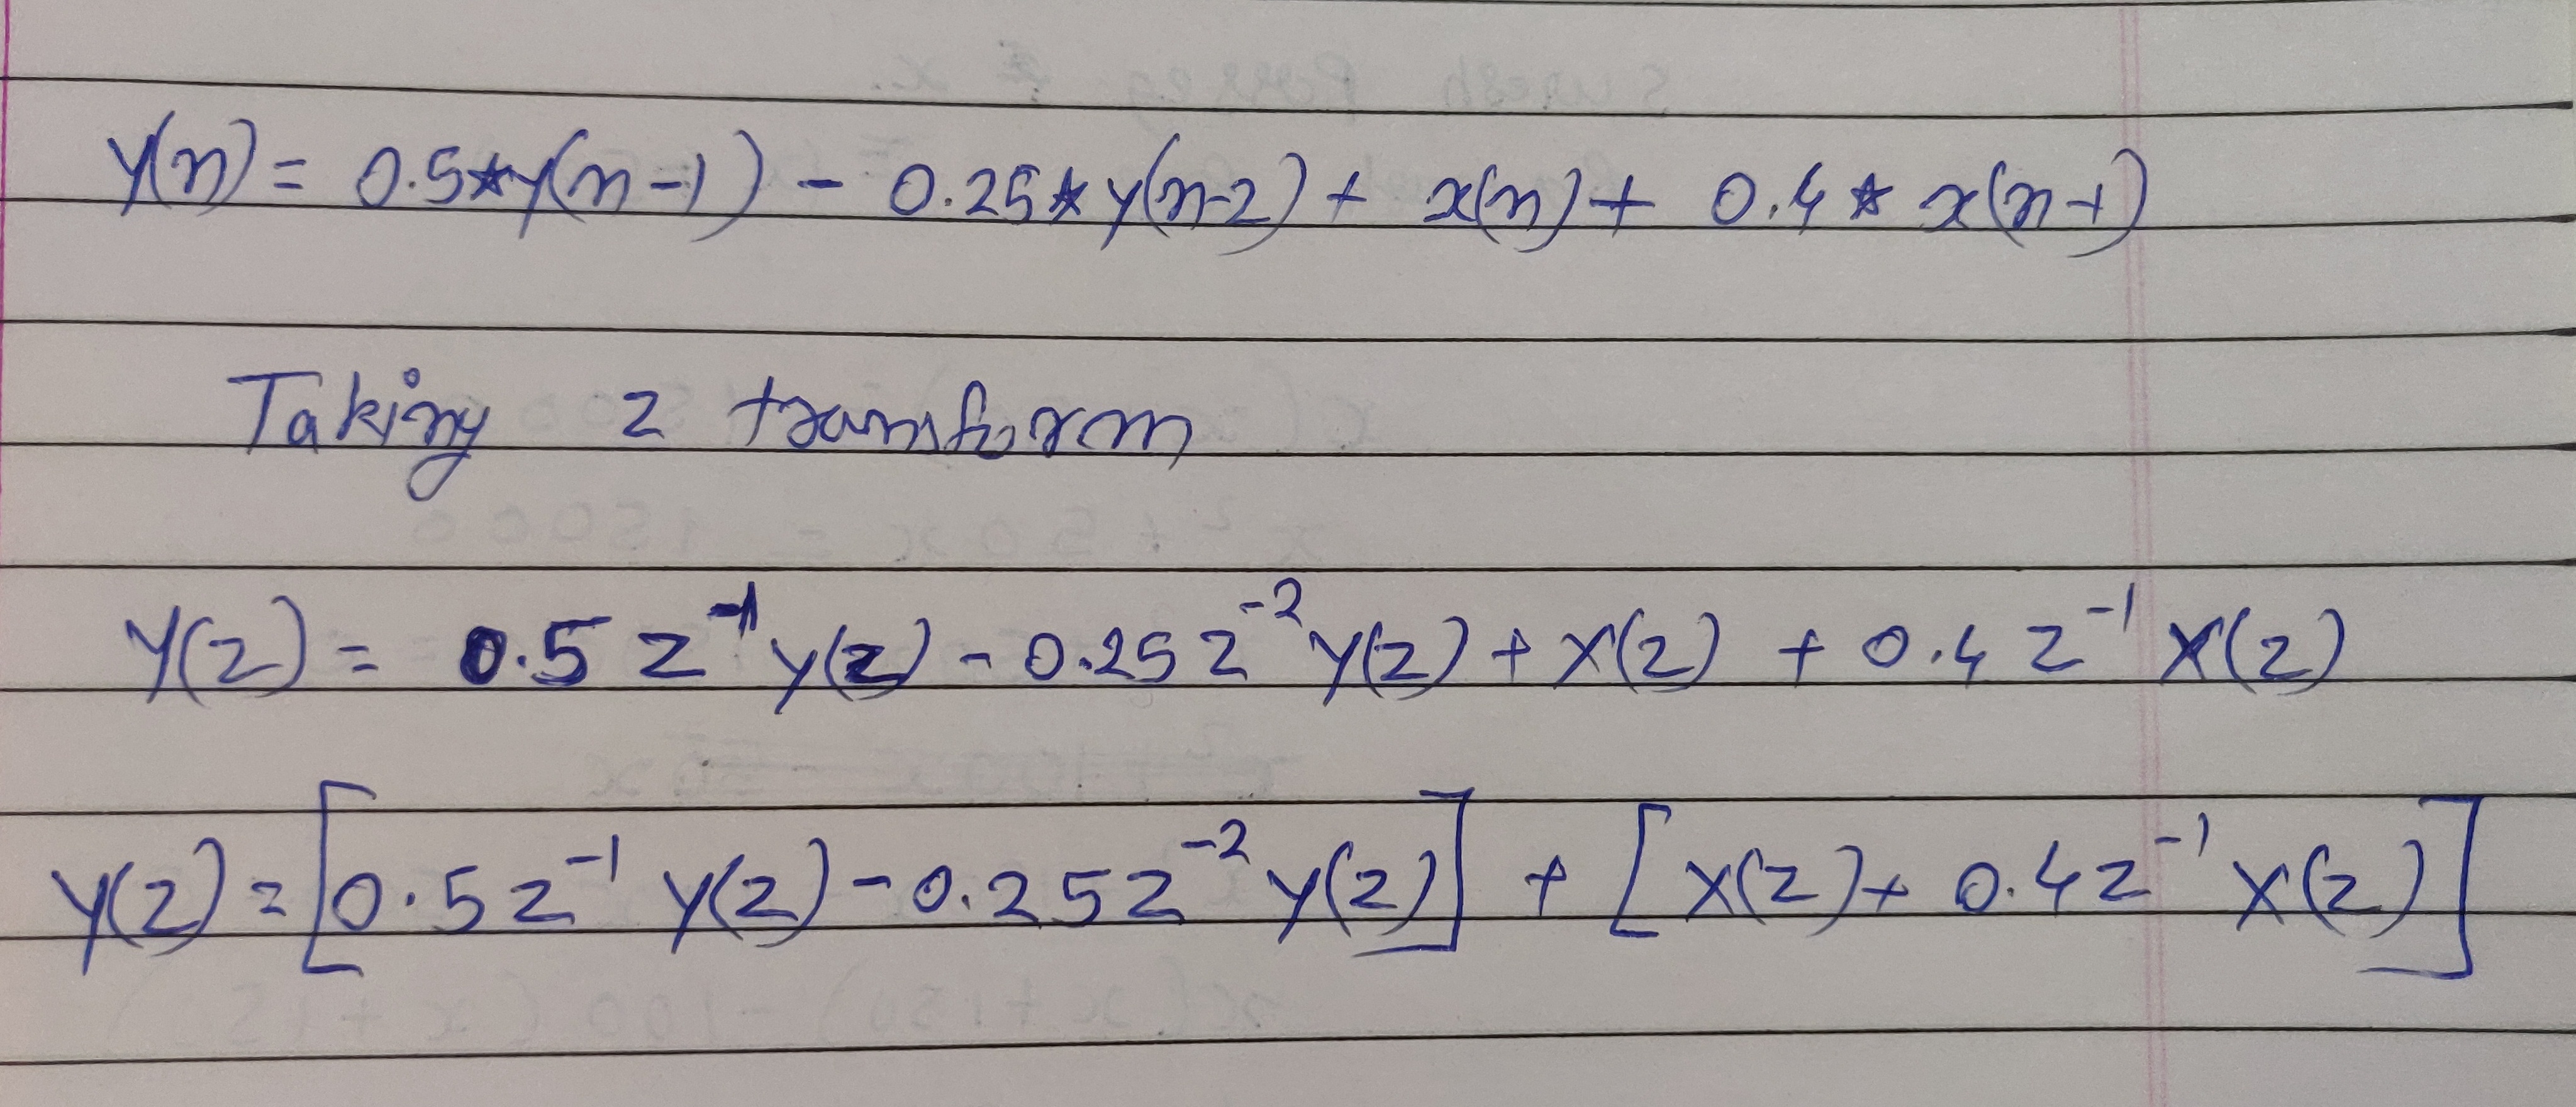 y(n) = 0.5*y(n-1) - 0.25*y(n-2) + x(n) + 0.4* x(n-1)
Taking z transform
Y(z) = 0.5 z⁻¹ Y(z) - 0.25 z⁻² Y(z) + X(z) + 0.4 z⁻¹ X(z)
Y(z) = [0.5 z⁻¹ Y(z) - 0.25 z⁻² Y(z)] + [X(z) + 0.4 z⁻¹ X(z)]